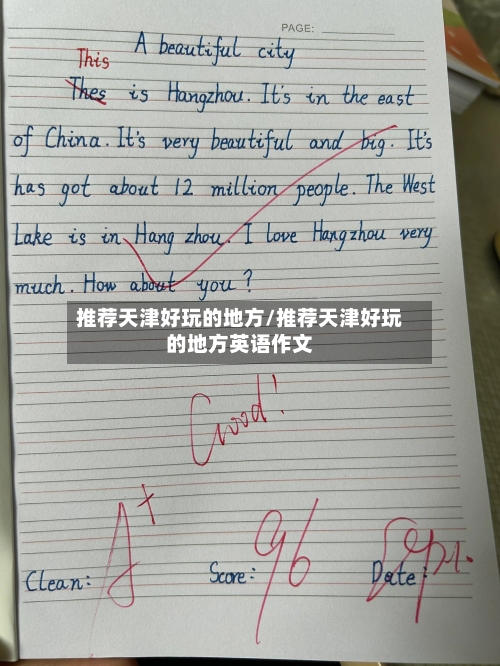 PAGE:
A beautiful city
This
Thes is Hangzhou. It's in the east
of China. It's very beautiful and big. It's
has got about 12 million people. The West
Lake is in Hang zhou. I love Hangzhou very
much. How about you?
推荐天津好玩的地方/推荐天津好玩
的地方英语作文
Good!
Clean: A+ Score: 96 Date: